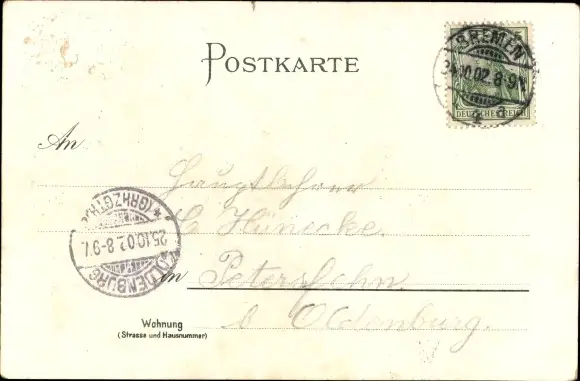 POSTKARTE
BREMEN
24.10.02.8-9V.
a
DEUTSCHES REICH
An
Hauptlehrer
Hünecke.
in Petersfehn
b Oldenburg.
OLDENBURG
25.10.02.8-9V.
*(GRHZGTH.)*
Wohnung
(Strasse und Hausnummer)